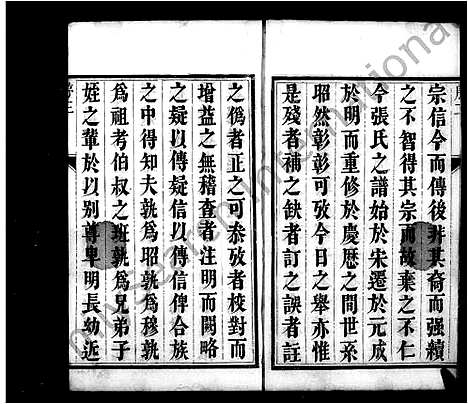 宗信今而傳後非其裔而强續
之不智得其宗而故棄之不仁
今張氏之譜始於宋遷於元成
於明而重修於慶歷之間世系
昭然彰彰可攷今日之舉亦惟
是殘者補之缺者訂之誤者註
之偽者正之可叅攷者校對而
增益之無稽查者注明而闕略
之疑以傳疑信以傳信俾合族
之中得知夫孰為昭孰為穆孰
為祖考伯叔之班孰為兄弟子
姪之輩於以別尊卑明長幼近